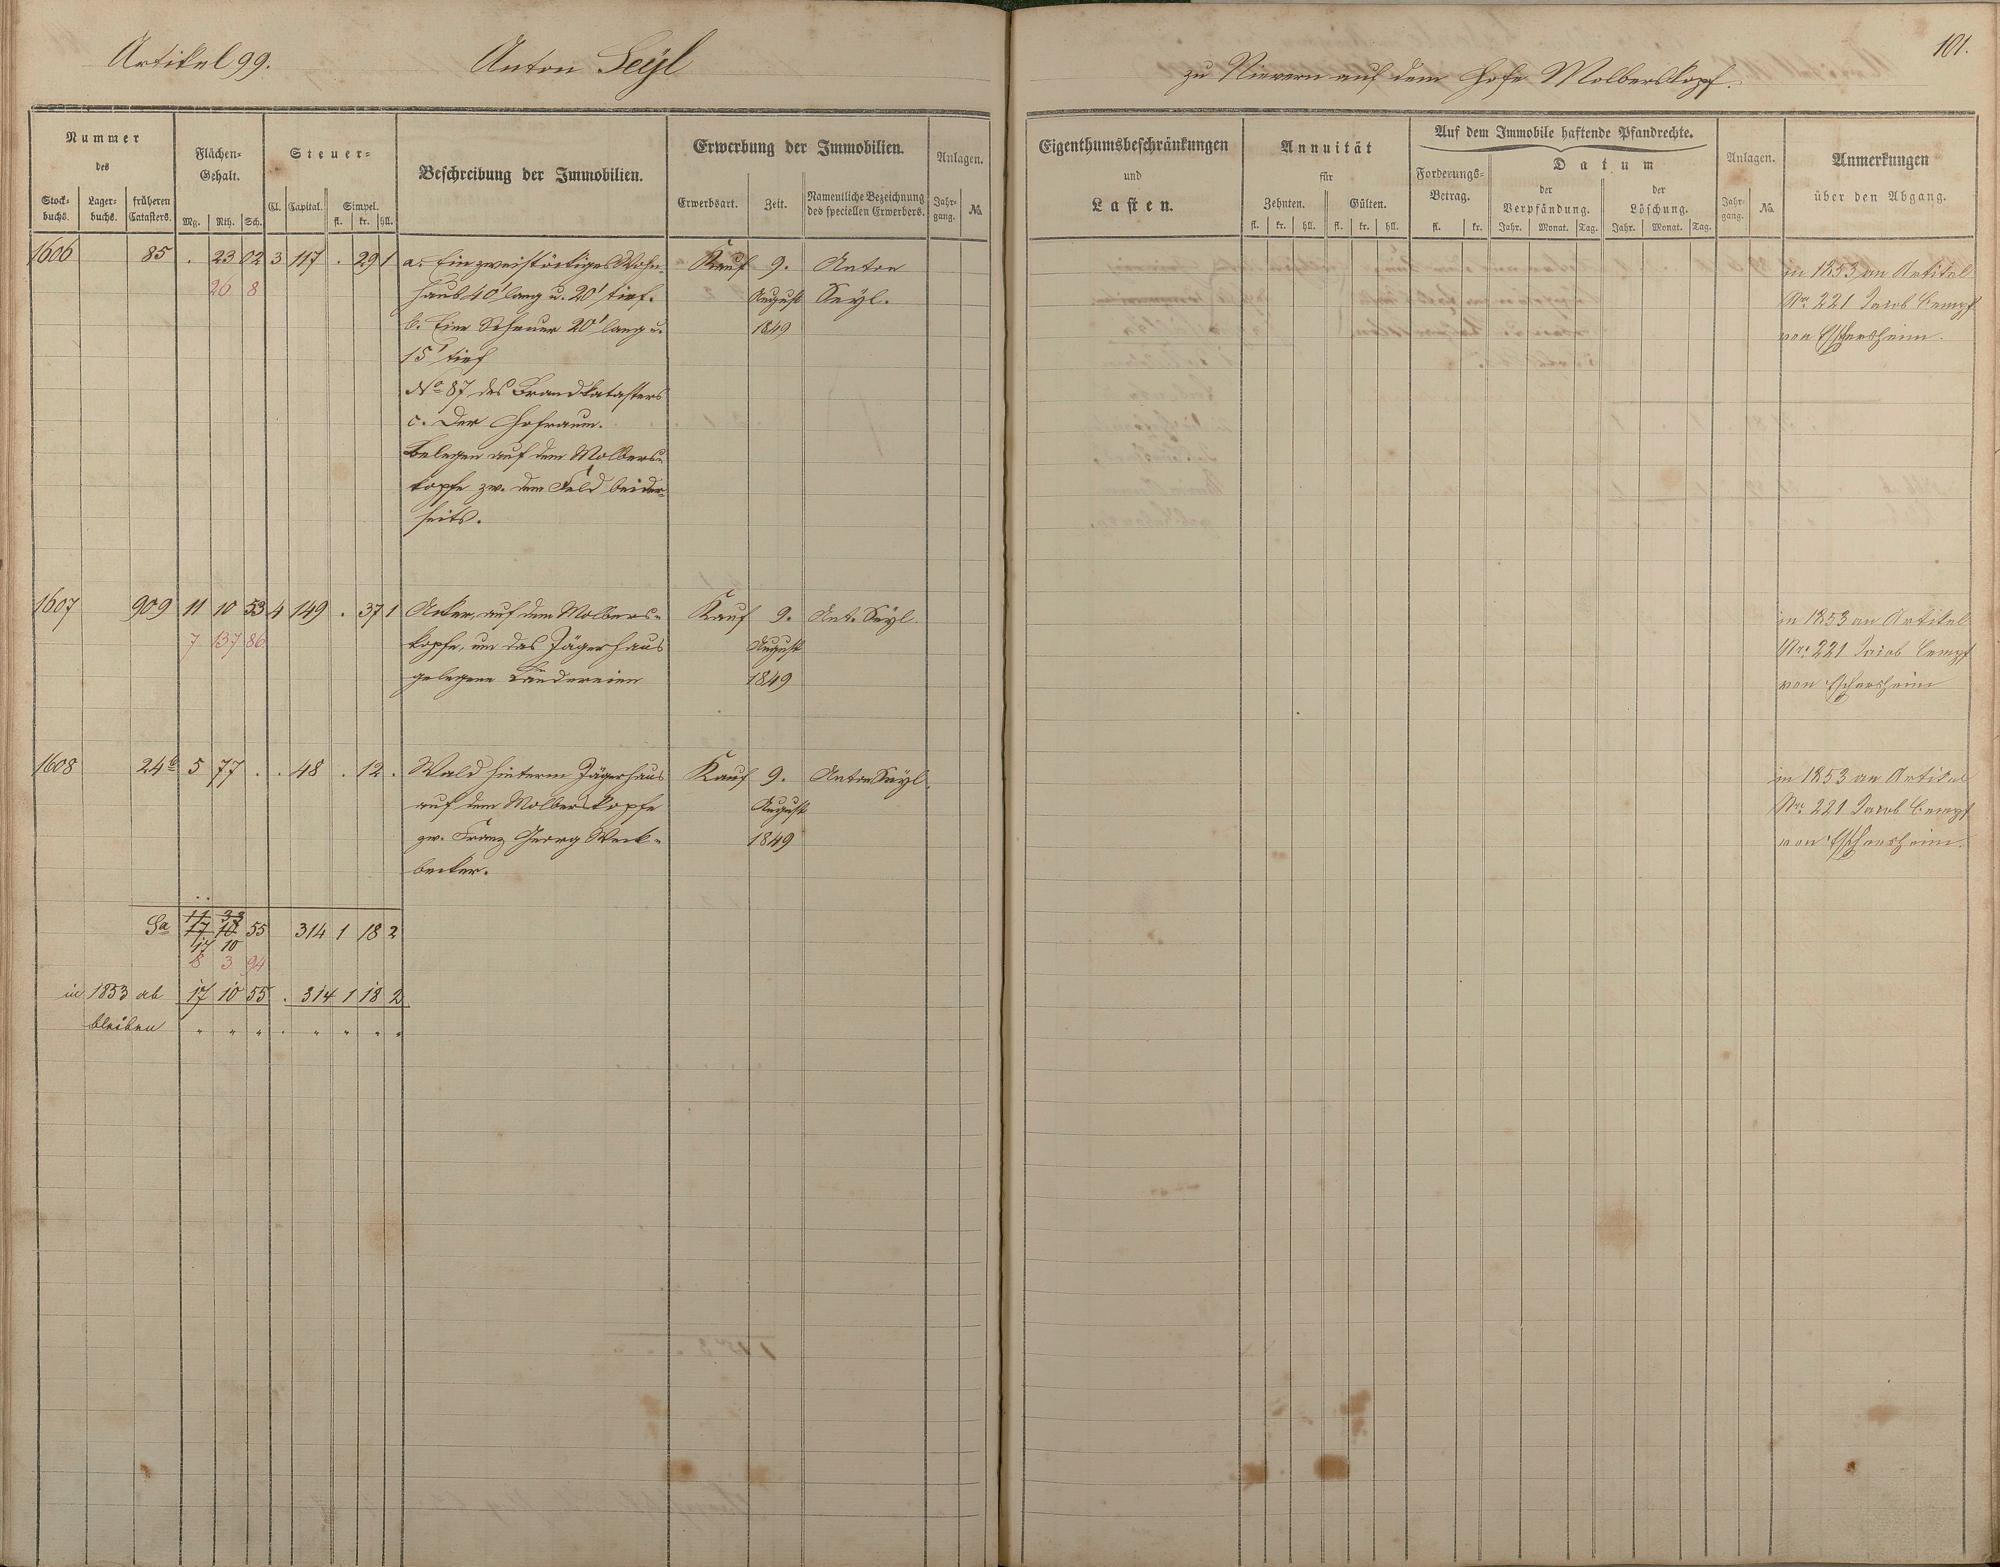 Artikel 99.
Anton Seÿl
zu Nievern auf dem Hofe Molberskopf.
101.
Nummer
des
Stock-
buchs.
Lager-
buchs.
früheren
Catasters.
Flächen-
Gehalt.
Mg. Rth. Sch.
Steuer-
Cl. Capital. Simpel.
fl. kr. hll.
Beschreibung der Immobilien.
Erwerbung der Immobilien.
Erwerbsart. Zeit. Namentliche Bezeichnung
des speciellen Erwerbers.
Anlagen.
Jahr-
gang. No.
Eigenthumsbeschränkungen
und
Lasten.
Annuität
für
Zehnten. Gülten.
fl. kr. hll. fl. kr. hll.
Auf dem Immobile haftende Pfandrechte.
Forderungs-
Betrag.
fl. kr.
Datum
der
Verpfändung.
Jahr. Monat. Tag.
der
Löschung.
Jahr. Monat. Tag.
Anlagen.
Jahr-
gang. No.
Anmerkungen
über den Abgang.
1606 85 . 23 02 3 117 . 29 1 a. Ein zweistöckiges Wohn- Kauf 9. Anton
26 8 haus 40' lang u. 20' tief. August Seÿl.
b. Eine Scheuer 20' lang u. 1849
15' tief
No 87 des Brandkatasters
c. Der Hofraum.
Belegen auf dem Molbers-
kopfe zw. dem Feld beider-
seits.
in 1853 an Artikel
Nr. 221 Jacob
von
1607 909 11 10 53 4 149 . 37 1 Acker, auf dem Molbers- Kauf 9. Ant. Seÿl.
7 137 86 kopfe, um das Jägerhaus August
gelegene Ländereien 1849
in 1853 an Artikel
Nr. 221 Jacob
von
1608 24b 5 77 . . 48 . 12 . Wald hinterm Jägerhaus Kauf 9. Anton Seÿl.
auf dem Molberskopfe August
zw. Franz Georg Weck- 1849
becker.
in 1853 an Artikel
Nr. 221 Jacob
von
11 33
Sa 17 10 55 314 1 18 2
17 10
8 3 94
in 1853 ab 17 10 55 . 314 1 18 2
bleiben " " " . " " " "